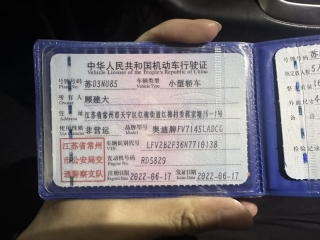 中华人民共和国机动车行驶证
Vehicle License of the People's Republic of China
号牌号码 苏D3NU85 车辆类型 小型轿车
Plate No. Vehicle Type
所有人 顾建大
Owner
住址 江苏省常州市天宁区红梅街道红梅村李程家塘16-1号
使用性质 非营运 品牌型号 奥迪牌FV7145LADCG
江苏省常州市公安局交通警察支队
车辆识别代号 LFV2B2F36N7710138
发动机号码 RD5829
注册日期 2022-06-17 发证日期 2022-06-17
Register Date Issue Date